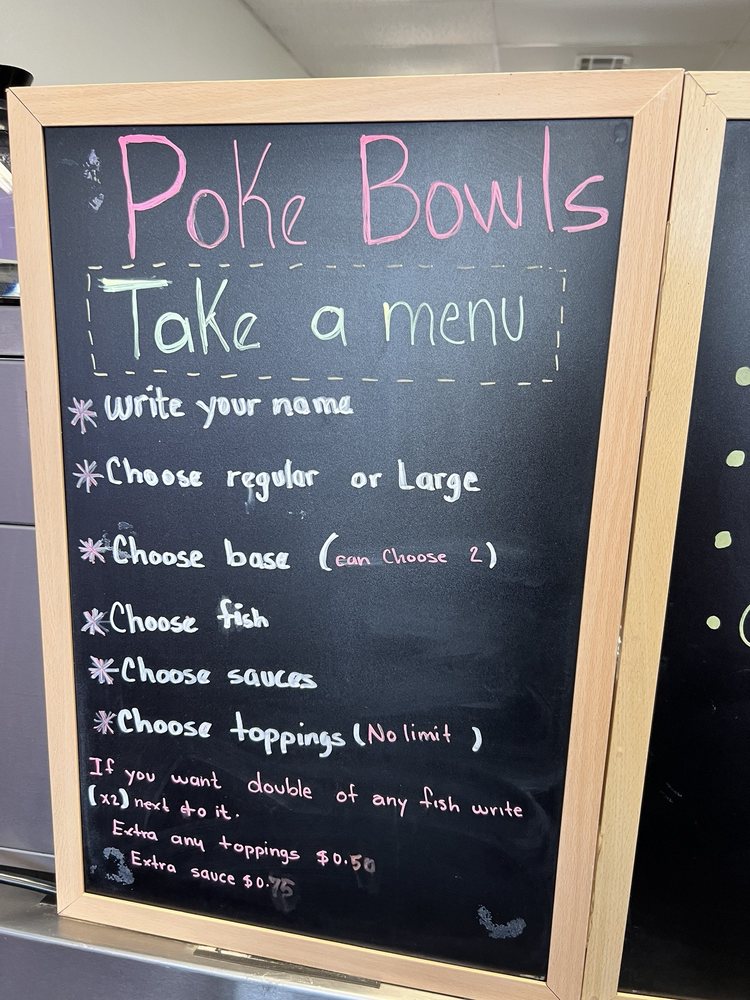 Poke Bowls
Take a menu
* Write your name
* Choose regular or Large
* Choose base (can Choose 2)
* Choose fish
* Choose sauces
* Choose toppings (No limit )
If you want double of any fish write
(x2) next to it.
Extra any toppings $0.50
Extra sauce $0.75